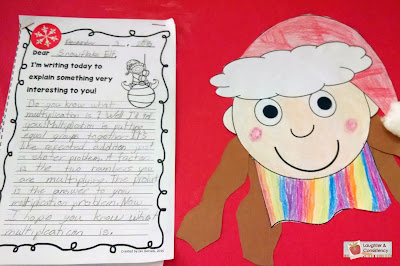 December
Dear Snowflake Elf,
I'm writing today to
explain something very
interesting to you!
Do you know what
multiplication is? Well I'll tell
you! Multiplication is putting
equal groups together. It's
like repeated addition just
a shorter problem. A factor
is the two numbers you
are multipling. The product
is the answer to your
multiplication problem. Now
I hope you know what
multiplication is.
Laughter &
Consistency